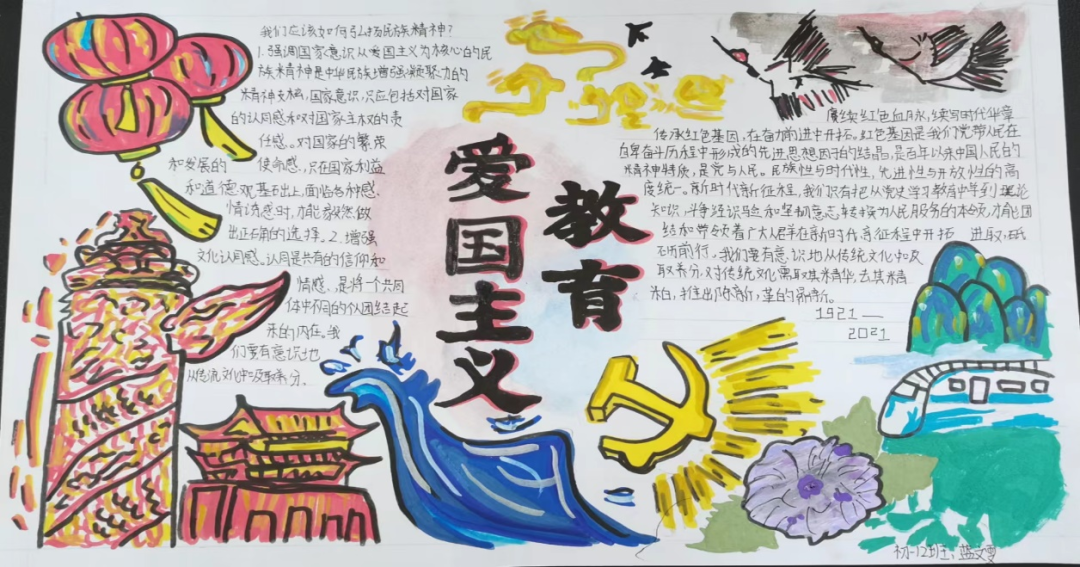 我们应该如何弘扬民族精神?
1.强调国家意识从爱国主义为核心的民
族精神是中华民族增强凝聚力的
精神支柱,国家意识,只应包括对国家
的认同感和对国家主权的责
任感。对国家的繁荣
和发展的 使命感,只在国家利益
和道德观基石出上,面临各种感
情诱惑时,才能毅然做
出正确的选择。2.增强
文化认同感。认同是共有的信仰和
情感,是将一个共同
体中不同的个人团结起
来的内在,我
们要有意识地
从传统文化中吸取养分。
爱国主义
教育
赓续红色血脉,续写时代华章
传承红色基因,在奋力前进中开拓。红色基因是我们党带人民在
自卑奋斗历程中形成的先进思想因子的结晶,是百年以来中国人民的
精神特质,是党与人民。民族性与时代性,先进性与开放性的高
度统一。新时代新征程,我们只有把从党史学习教育中学到理论
知识,斗争经识 和坚韧意志,转换为人民服务的本领,才能团
结和带领着广大人群在新时代新征程中开拓 进取,砥
砺前行,我们要有意识地从传统文化中吸
取养分,对传统文化需取其精华,去其糟
粕,推出陈新,革的鼎新。
1921—
2021
初一12班